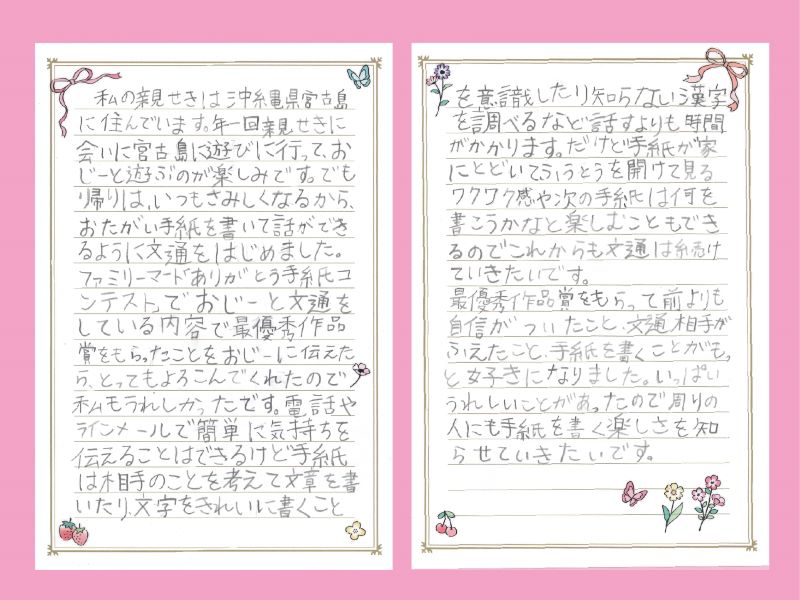 私の親せきは沖縄県宮古島
に住んでいます。年一回親せきに
会いに宮古島に遊びに行って、お
じーと遊ぶのが楽しみです。でも
帰りは、いつもさみしくなるから、
おたがい手紙を書いて話ができ
るように文通をはじめました。
ファミリーマードありがとう手紙コ
ンテスト」でおじーと文通を
している内容で最優秀作品
賞をもらったことをおじーに伝えた
ら、とってもよろこんでくれたので
私もうれしかったです。電話や
ラインメールで簡単に気持ちを
伝えることはできるけど手紙
は相手のことを考えて文章を書
いたり、文字をきれいに書くこと
を意識したり知らない漢字
を調べるなど話すよりも時間
がかかります。だけど手紙が家
にとどいてふうとうを開けて見る
ワクワク感や次の手紙は何を
書こうかなと楽しむこともでき
るのでこれからも文通は続け
ていきたいです。
最優秀作品賞をもらって前よりも
自信がついたこと、文通相手が
ふえたこと、手紙を書くことがも
っと好きになりました。いっぱい
うれしいことがあったので周りの
人にも手紙を書く楽しさを知
らせていきたいです。